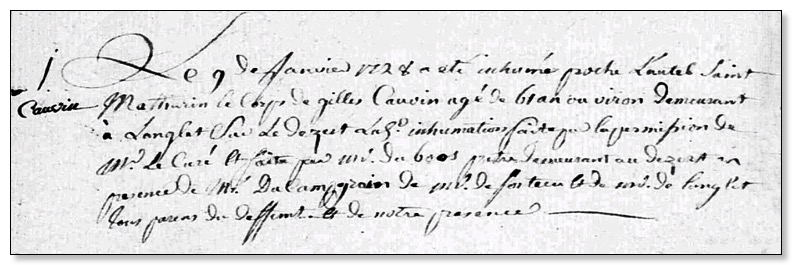 1
Cauvin
Le 9 de Janvier 1728 a eté inhumé proche Lautel Saint
Mathurin le Corps de gilles Cauvin agé de 61 an ou viron demeurant
à Langlet Sur Le dezest inhumation faite par la permission de
Mr. Le Curé et faite par mr. du boos pretre demeurant au dezert en
presence de Mr. Du Campgrain de mr. de et de mr. de langlet
tous parens du deffunt et de notre presence